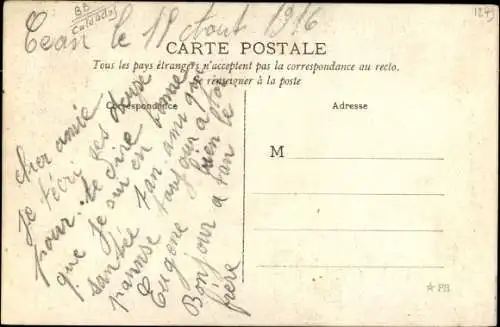 BD
Calvados
1241
Caen le 18 Aout 1916
CARTE POSTALE
Tous les pays étrangers n'acceptent pas la correspondance au recto.
Se renseigner à la poste
Correspondance
Adresse
M
cher amie
je t'écri ses deux
pour te dire
que je sui en bonne
santée ton ami qui
panse
Eugene
bien le
Bonjour a ton
frère
☆ PH